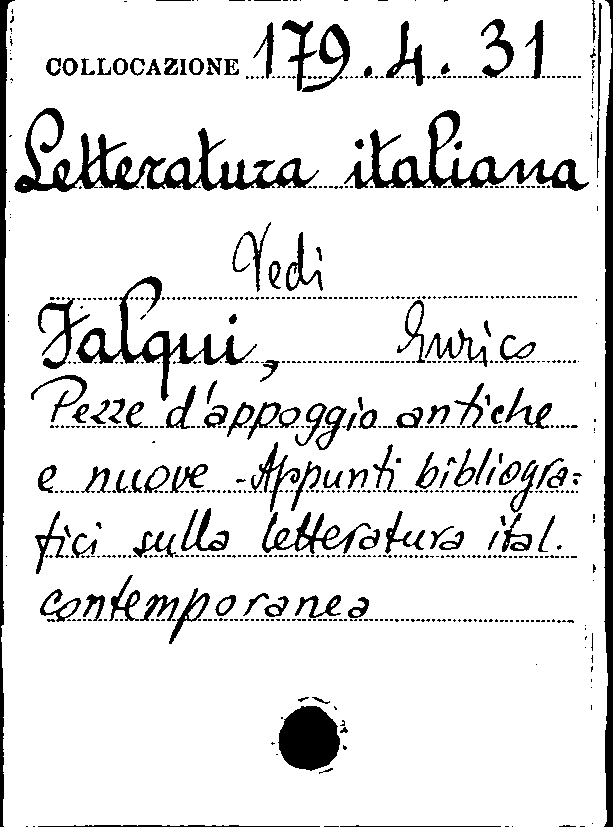 COLLOCAZIONE 179.4.31
Letteratura italiana
Vedi
Falqui, Enrico
Pezze d'appoggio antiche
e nuove - Appunti bibliogra=
fici sulla letteratura ital.
contemporanea